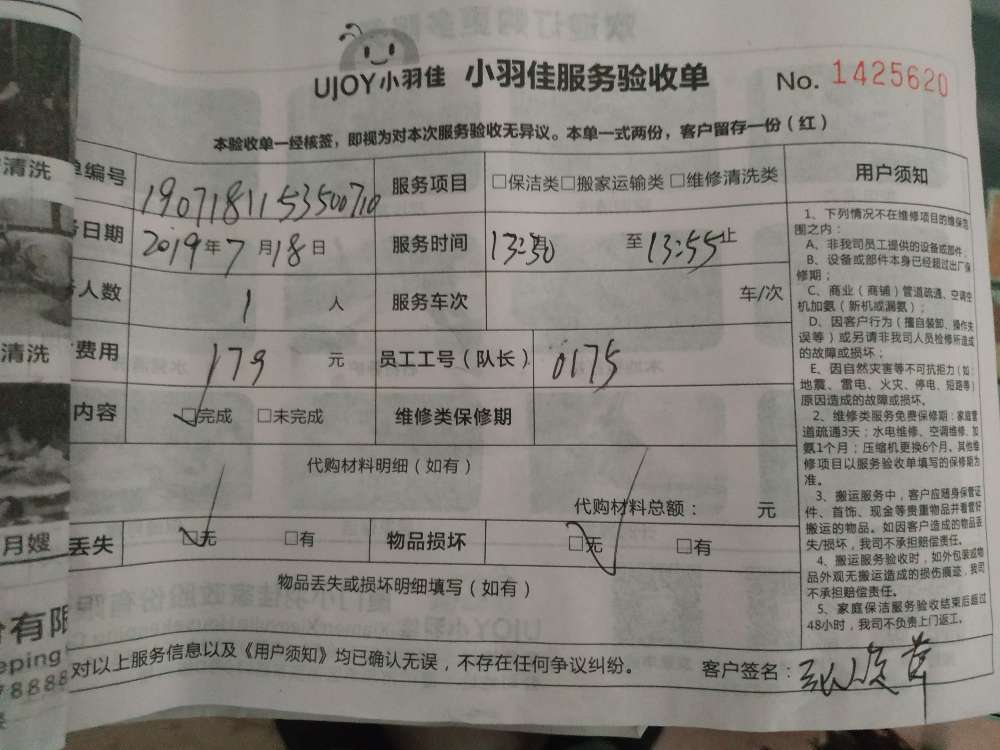 UJOY小羽佳 小羽佳服务验收单 No. 1425620
本验收单一经核签，即视为对本次服务验收无异议。本单一式两份，客户留存一份（红）
单编号 1907181153500710 服务项目 □保洁类□搬家运输类□维修清洗类
务日期 2019年7月18日 服务时间 13:30 至 13:55止
务人数 1 人 服务车次 车/次
费用 179 元 员工工号（队长） 0175
内容 □完成 □未完成 维修类保修期
代购材料明细（如有）
代购材料总额： 元
丢失 □无 □有 物品损坏 □无 □有
物品丢失或损坏明细填写（如有）
对以上服务信息以及《用户须知》均已确认无误，不存在任何争议纠纷。 客户签名：
用户须知
1、下列情况不在维修项目的维保范
围之内：
A、非我司员工提供的设备或部件；
B、设备或部件本身已经超过出厂保
修期；
C、商业（商铺）管道疏通、空调空
机加氨（新机或漏氨）；
D、因客户行为（擅自装卸、操作失
误等）或另请非我司人员检修所造成
的故障或损坏；
E、因自然灾害等不可抗拒力（如：
地震、雷电、火灾、停电、短路等）
原因造成的故障或损坏。
2、维修类服务免费保修期：家庭管
道疏通3天；水电维修、空调维修、加
氨1个月；压缩机更换6个月。其他维
修项目以服务验收单填写的保修期为
准。
3、搬运服务中，客户应随身保管证
件、首饰、现金等贵重物品并看管好
搬运的物品。如因客户造成的物品丢
失/损坏，我司不承担赔偿责任。
4、搬运服务验收时，如外包装或物
品外观无搬运造成的损伤痕迹，我司
不承担赔偿责任。
5、家庭保洁服务验收结束后超过
48小时，我司不负责上门返工。
清洗
清洗
月嫂
份有限
eping
78888